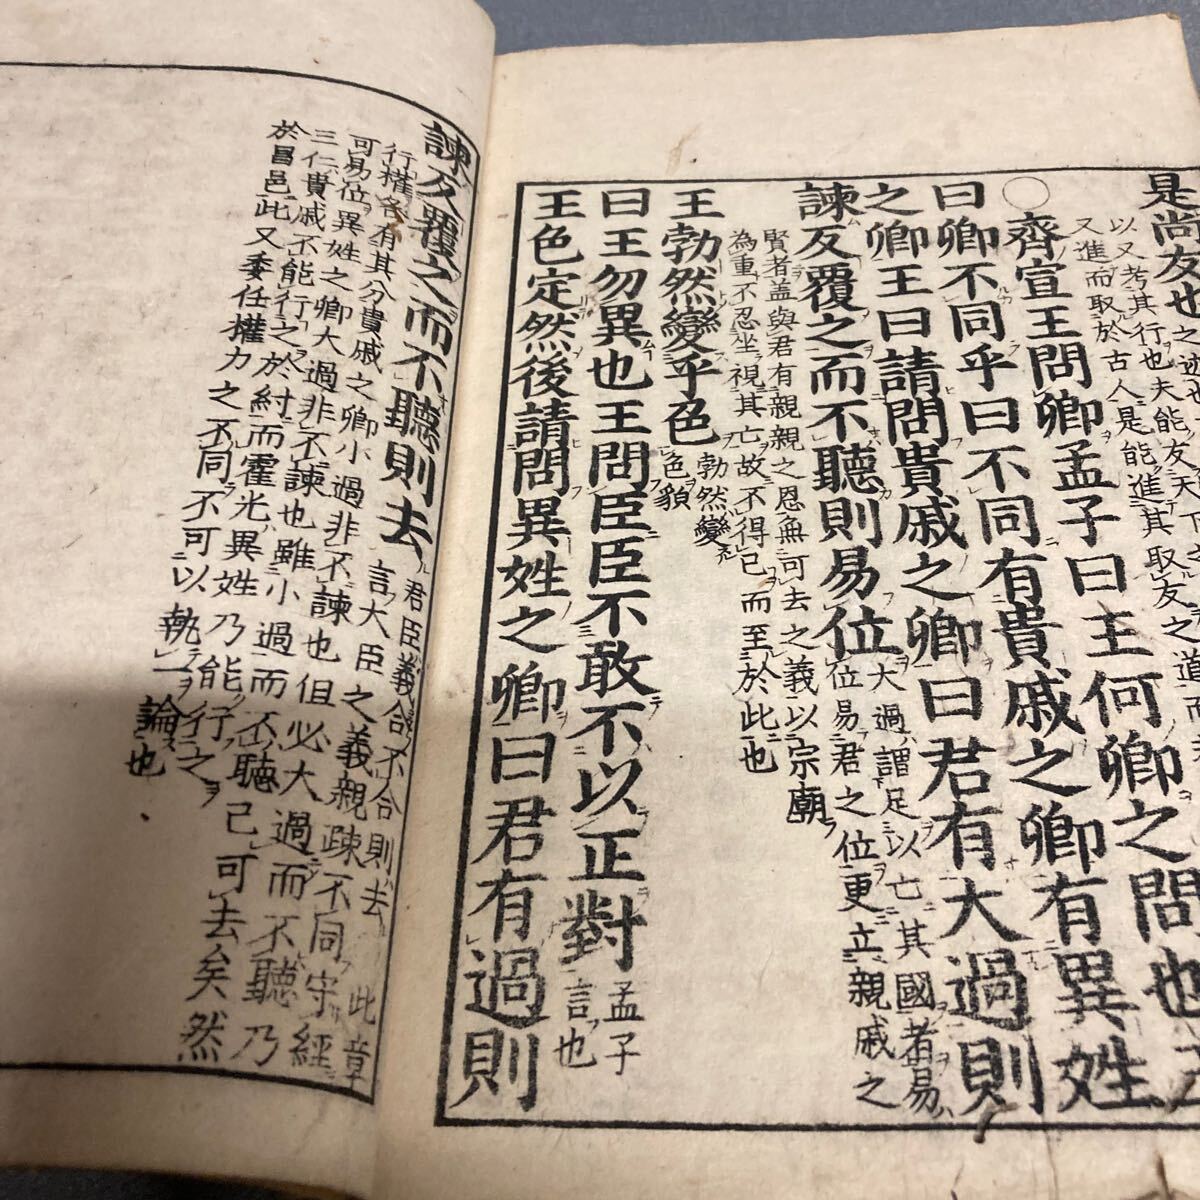 是尚友也
以又考其行也夫能友天下之
又進而取於古人是能進其取友之道而
○齊宣王問卿孟子曰王何卿之問也王
曰卿不同乎曰不同有貴戚之卿有異姓
之卿王曰請問貴戚之卿曰君有大過則
諫反覆之而不聽則易位大過謂足以亡其國者易
位易君之位更立親戚之
賢者蓋與君有親親之恩無可去之義以宗廟
為重不忍坐視其亡故不得已而至於此也
王勃然變乎色勃然變
色貌
曰王勿異也王問臣臣不敢不以正對孟子
言也
王色定然後請問異姓之卿曰君有過則
諫反覆之而不聽則去君臣義合不合則去此章
言大臣之義親疎不同守經
行權各有其分貴戚之卿小過非不諫也但必大過而不聽乃
可易位異姓之卿大過非不諫也雖小過而不聽已可去矣然
三仁貴戚不能行之於紂而霍光異姓乃能行之
於昌邑此又委任權力之不同不可以執一論也